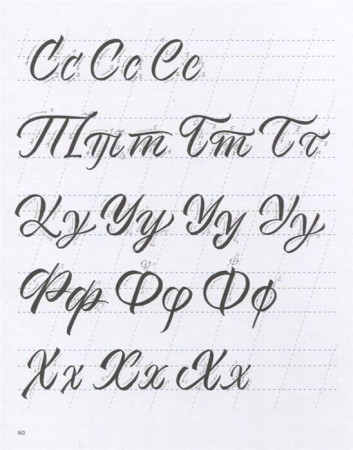 Сс Сс Сс
Тт т Тт Тт
Уу Уу Уу Уу
Фф Фф Фф
Хх Хх Хх
60